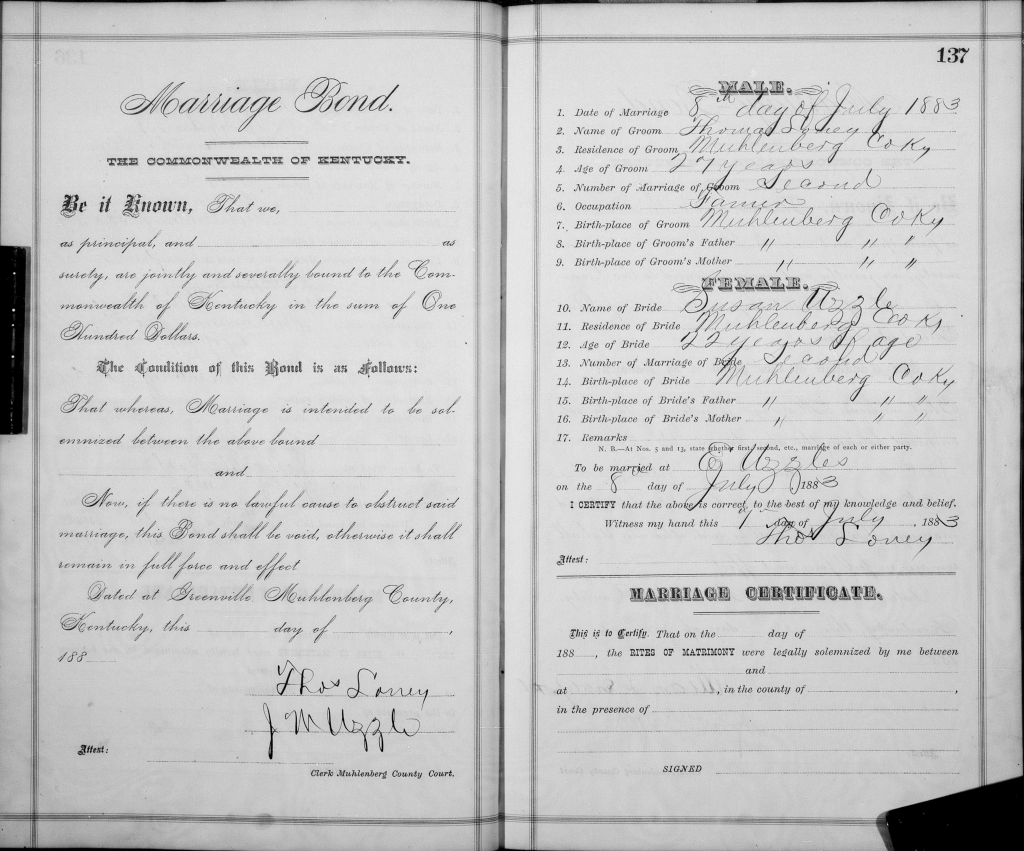 Marriage Bond.
THE COMMONWEALTH OF KENTUCKY.
Be it Known, That we,
as principal, and as
surety, are jointly and severally bound to the Com-
monwealth of Kentucky in the sum of One
Hundred Dollars.
The Condition of this Bond is as Follows:
That whereas, Marriage is intended to be sol-
emnized between the above bound
and
Now, if there is no lawful cause to obstruct said
marriage, this Bond shall be void, otherwise it shall
remain in full force and effect
Dated at Greenville Muhlenberg County,
Kentucky, this day of ,
188
Thos Loney
J M Uzzle
Attest:
Clerk Muhlenberg County Court.
137
MALE.
1. Date of Marriage 8th day of July 1883
2. Name of Groom Thomas Loney
3. Residence of Groom Muhlenberg Co Ky
4. Age of Groom 27 years
5. Number of Marriage of Groom Second
6. Occupation Famer
7. Birth-place of Groom Muhlenberg Co Ky
8. Birth-place of Groom's Father " " "
9. Birth-place of Groom's Mother " " "
FEMALE.
10. Name of Bride Susan Uzzle
11. Residence of Bride Muhlenberg Co Ky
12. Age of Bride 22 years of age
13. Number of Marriage of Bride Second
14. Birth-place of Bride Muhlenberg Co Ky
15. Birth-place of Bride's Father " " "
16. Birth-place of Bride's Mother " " "
17. Remarks
N. B.—At Nos. 5 and 13, state whether first, second, etc., marriage of each or either party.
To be married at Uzzles
on the 8th day of July 1883
I CERTIFY that the above is correct, to the best of my knowledge and belief.
Witness my hand this day of July , 1883
Thos Loney
Attest:
MARRIAGE CERTIFICATE.
This is to Certify, That on the day of
188 , the RITES OF MATRIMONY were legally solemnized by me between
and
at , in the county of ,
in the presence of
SIGNED